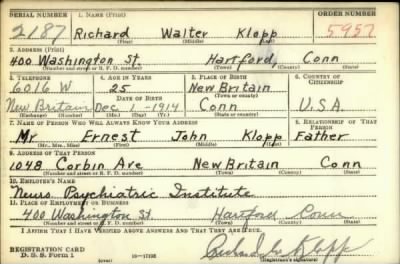 SERIAL NUMBER 1. NAME (Print) ORDER NUMBER
2187 Richard Walter Klopp 5957
(First) (Middle) (Last)
2. ADDRESS (Print)
400 Washington St. Hartford, Conn
(Number and street or R. F. D. number) (Town) (County) (State)
3. TELEPHONE 4. AGE IN YEARS 5. PLACE OF BIRTH 6. COUNTRY OF CITIZENSHIP
6016 W 25 New Britain
DATE OF BIRTH (Town or county)
New Britain Dec 1-1914 Conn U.S.A
(Exchange) (Number) (Mo.) (Day) (Yr.) (State or country)
7. NAME OF PERSON WHO WILL ALWAYS KNOW YOUR ADDRESS 8. RELATIONSHIP OF THAT PERSON
Mr Ernest John Klopp Father
(Mr., Mrs., Miss) (First) (Middle) (Last)
9. ADDRESS OF THAT PERSON
1048 Corbin Ave New Britain Conn
(Number and street or R. F. D. number) (Town) (County) (State)
10. EMPLOYER'S NAME
Neuro Psychiatric Institute
11. PLACE OF EMPLOYMENT OR BUSINESS
400 Washington St Hartford Conn
(Number and street or R. F. D. number) (Town) (County) (State)
I AFFIRM THAT I HAVE VERIFIED ABOVE ANSWERS AND THAT THEY ARE TRUE.
REGISTRATION CARD
D. S. S. Form 1 16-17105 (Registrant's signature)